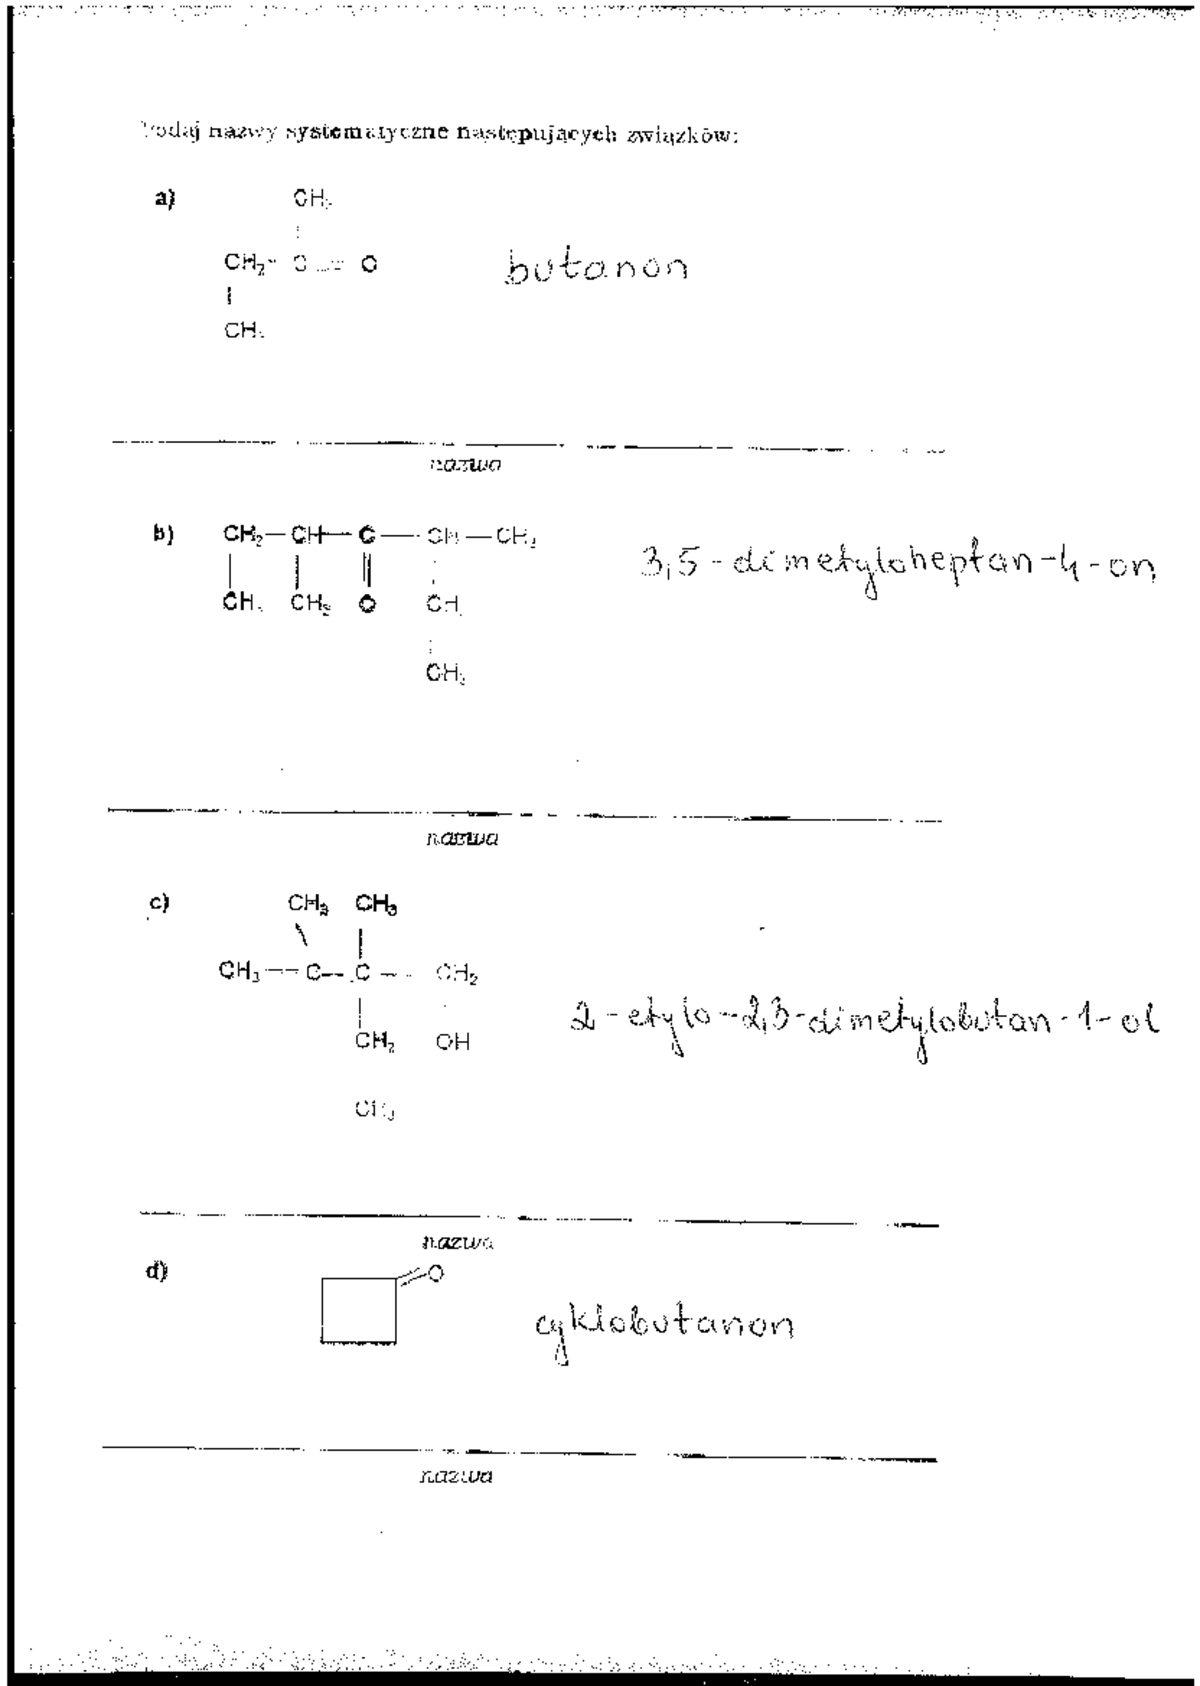 Podaj nazwy systematyczne następujących związków:
a)
CH₃
CH₂- C = O
CH₃
butanon
nazwa
b)
CH₂—CH—C—CH—CH₃
CH₃ CH₃ O CH₂
CH₃
3,5-dimetyloheptan-4-on
nazwa
c)
CH₃ CH₃
CH₃—C—C—CH₂
CH₂ OH
CH₃
2-etylo-2,3-dimetylobutan-1-ol
nazwa
d)
O
cyklobutanon
nazwa